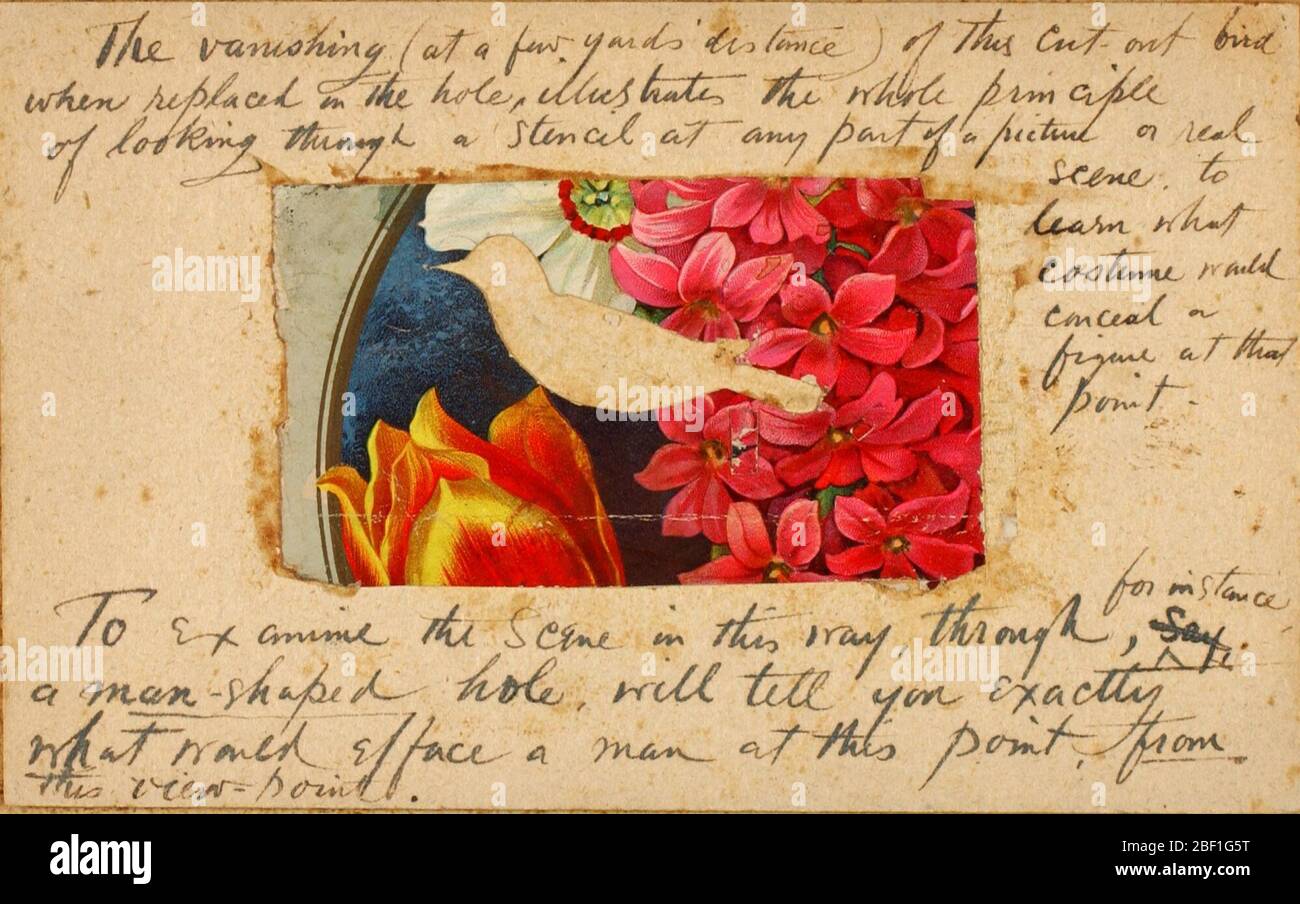 The vanishing (at a few yards' distance) of this cut-out bird
when replaced in the hole, illustrates the whole principle
of looking through a stencil at any part of a picture or real
scene. to
learn what
costume would
conceal a
figure at that
point.
for instance
To examine the scene in this way, through, say
a man-shaped hole, will tell you exactly
what would efface a man at this point, from
this view-point.
alamy
Image ID: 2BF1G5T
www.alamy.com